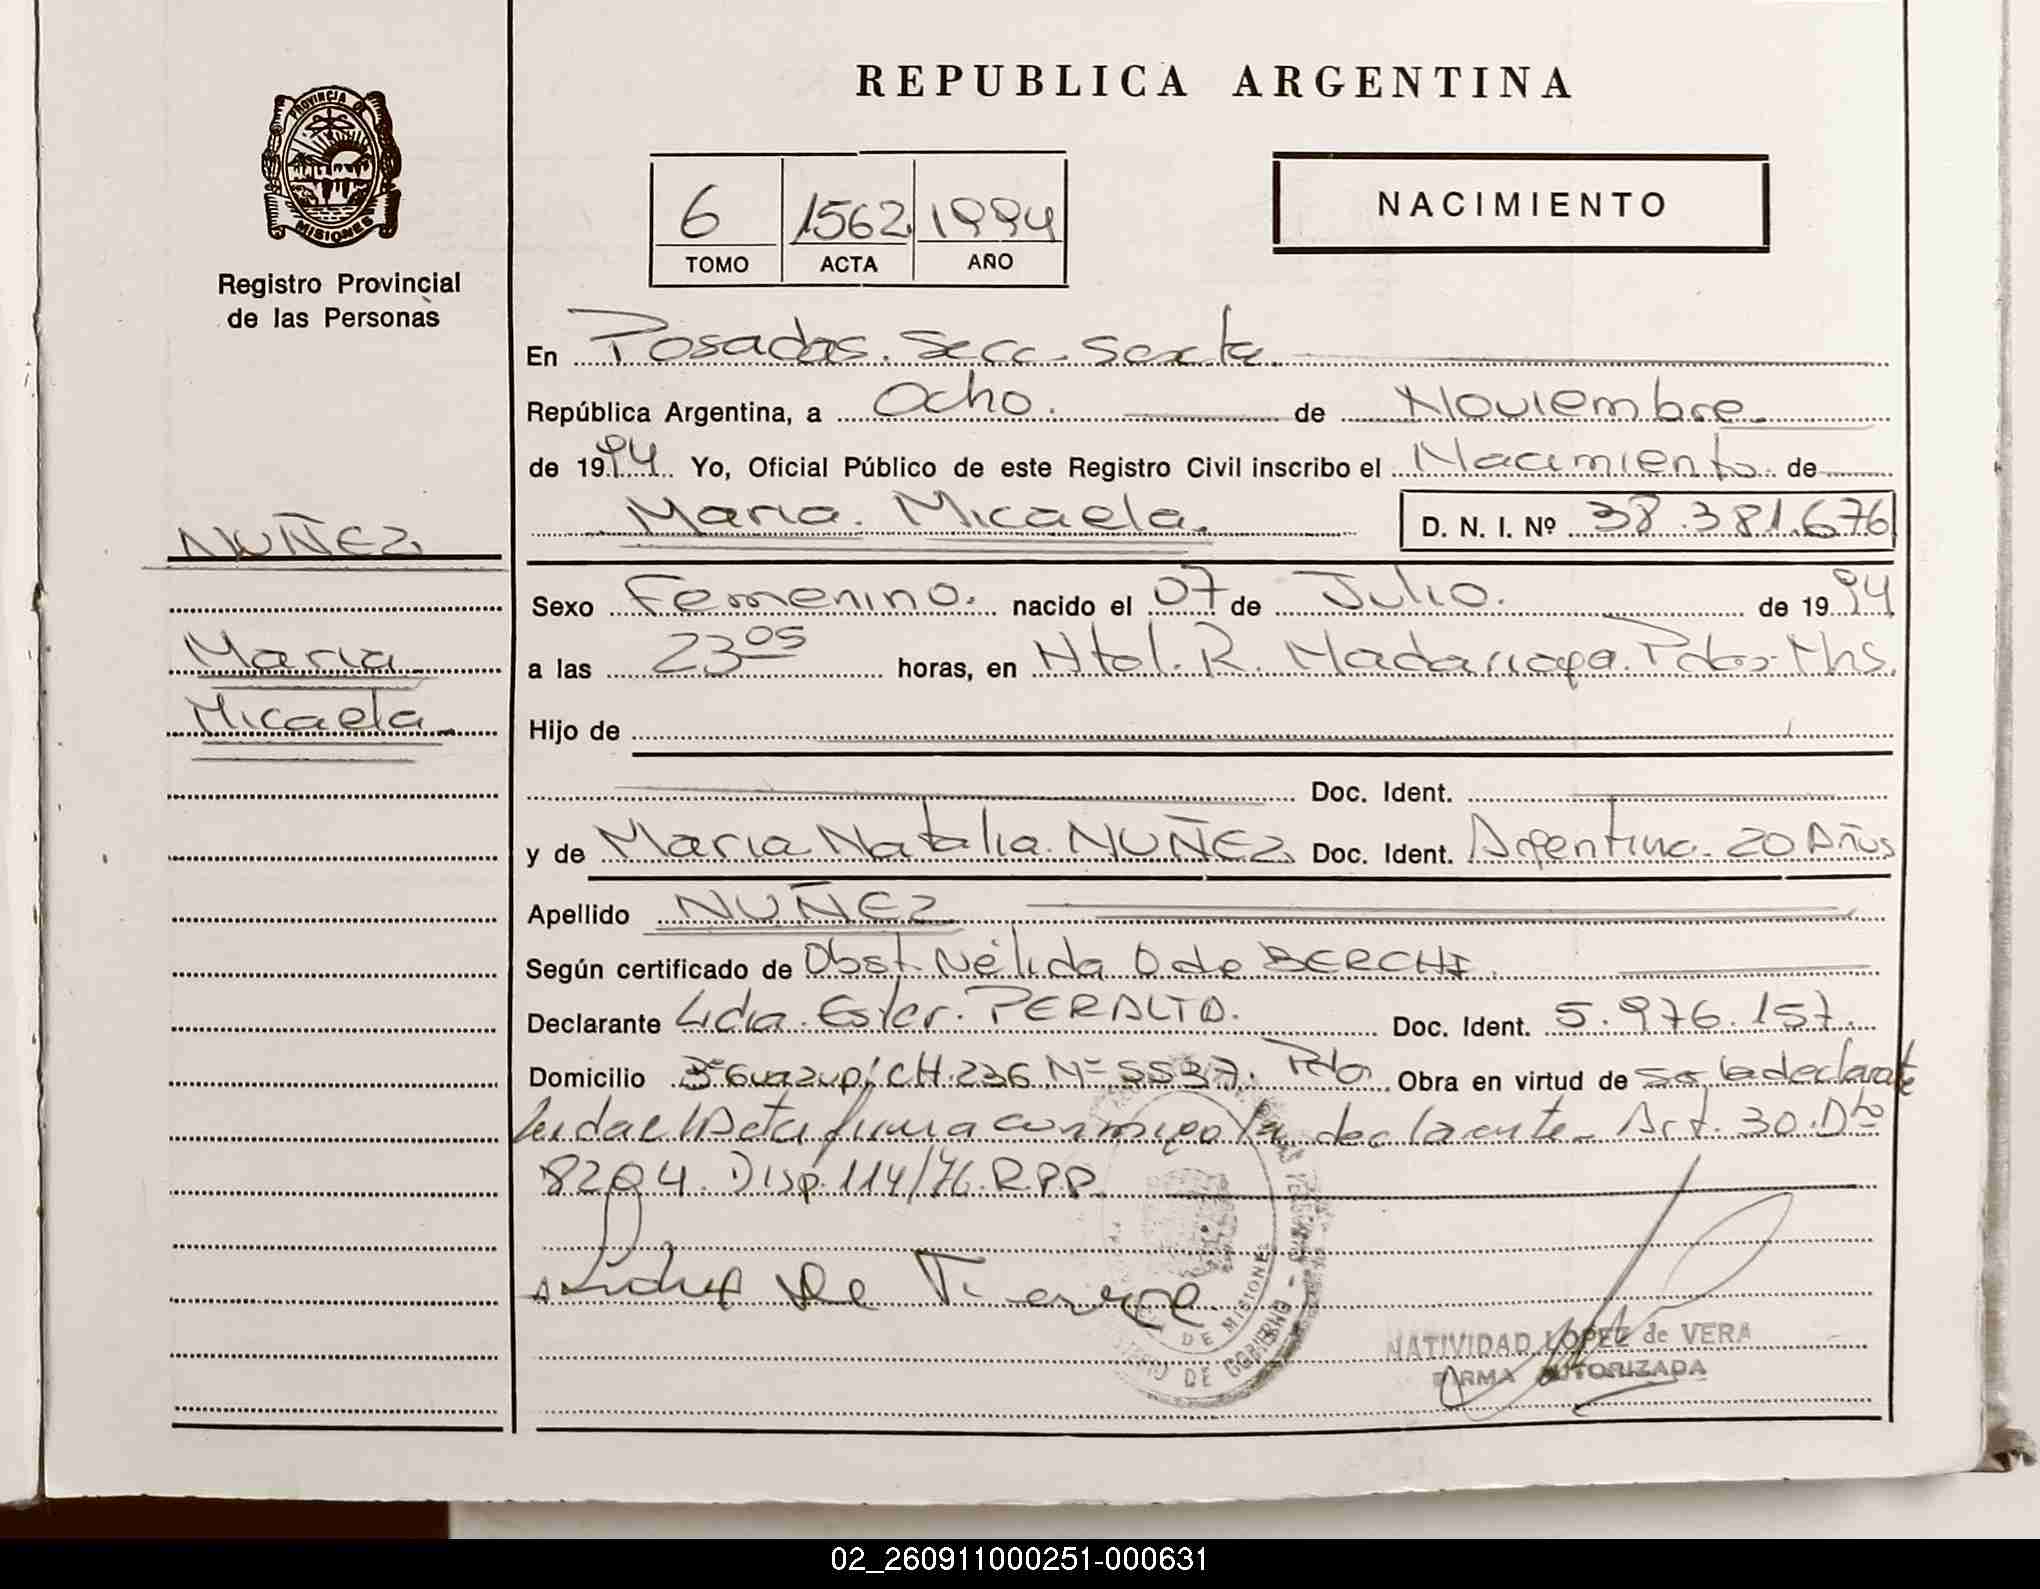 REPUBLICA ARGENTINA
PROVINCIA DE
MISIONES
Registro Provincial
de las Personas
6 1562 1994
TOMO ACTA AÑO
NACIMIENTO
En Posadas. Secc. Sexta.
República Argentina, a Ocho. de Noviembre.
de 1994. Yo, Oficial Público de este Registro Civil inscribo el Nacimiento de
Maria. Micaela. D. N. I. Nº 38.381.676
NUÑEZ
Maria
Micaela
Sexo Femenino. nacido el 07 de Julio. de 1994
a las 23 05 horas, en Htal. R. Madariaga. Pdas. Mns.
Hijo de
Doc. Ident.
y de Maria Natalia. NUÑEZ Doc. Ident. Argentina. 20 Años
Apellido NUÑEZ
Según certificado de Obst. Nélida O de BERCHI
Declarante Lidia. Ester. PERALTA. Doc. Ident. 5.976.157.
Domicilio Guazupi CH. 236 Nº 5537. Pdas Obra en virtud de ser la declarante
Leida el Acta firma conmigo la declarante. Art. 30. Dto
8204. Disp. 114/76. R.P.P.
DE MISIONE
DE GOBIERNO
NATIVIDAD LOPEZ de VERA
FIRMA AUTORIZADA
02_260911000251-000631